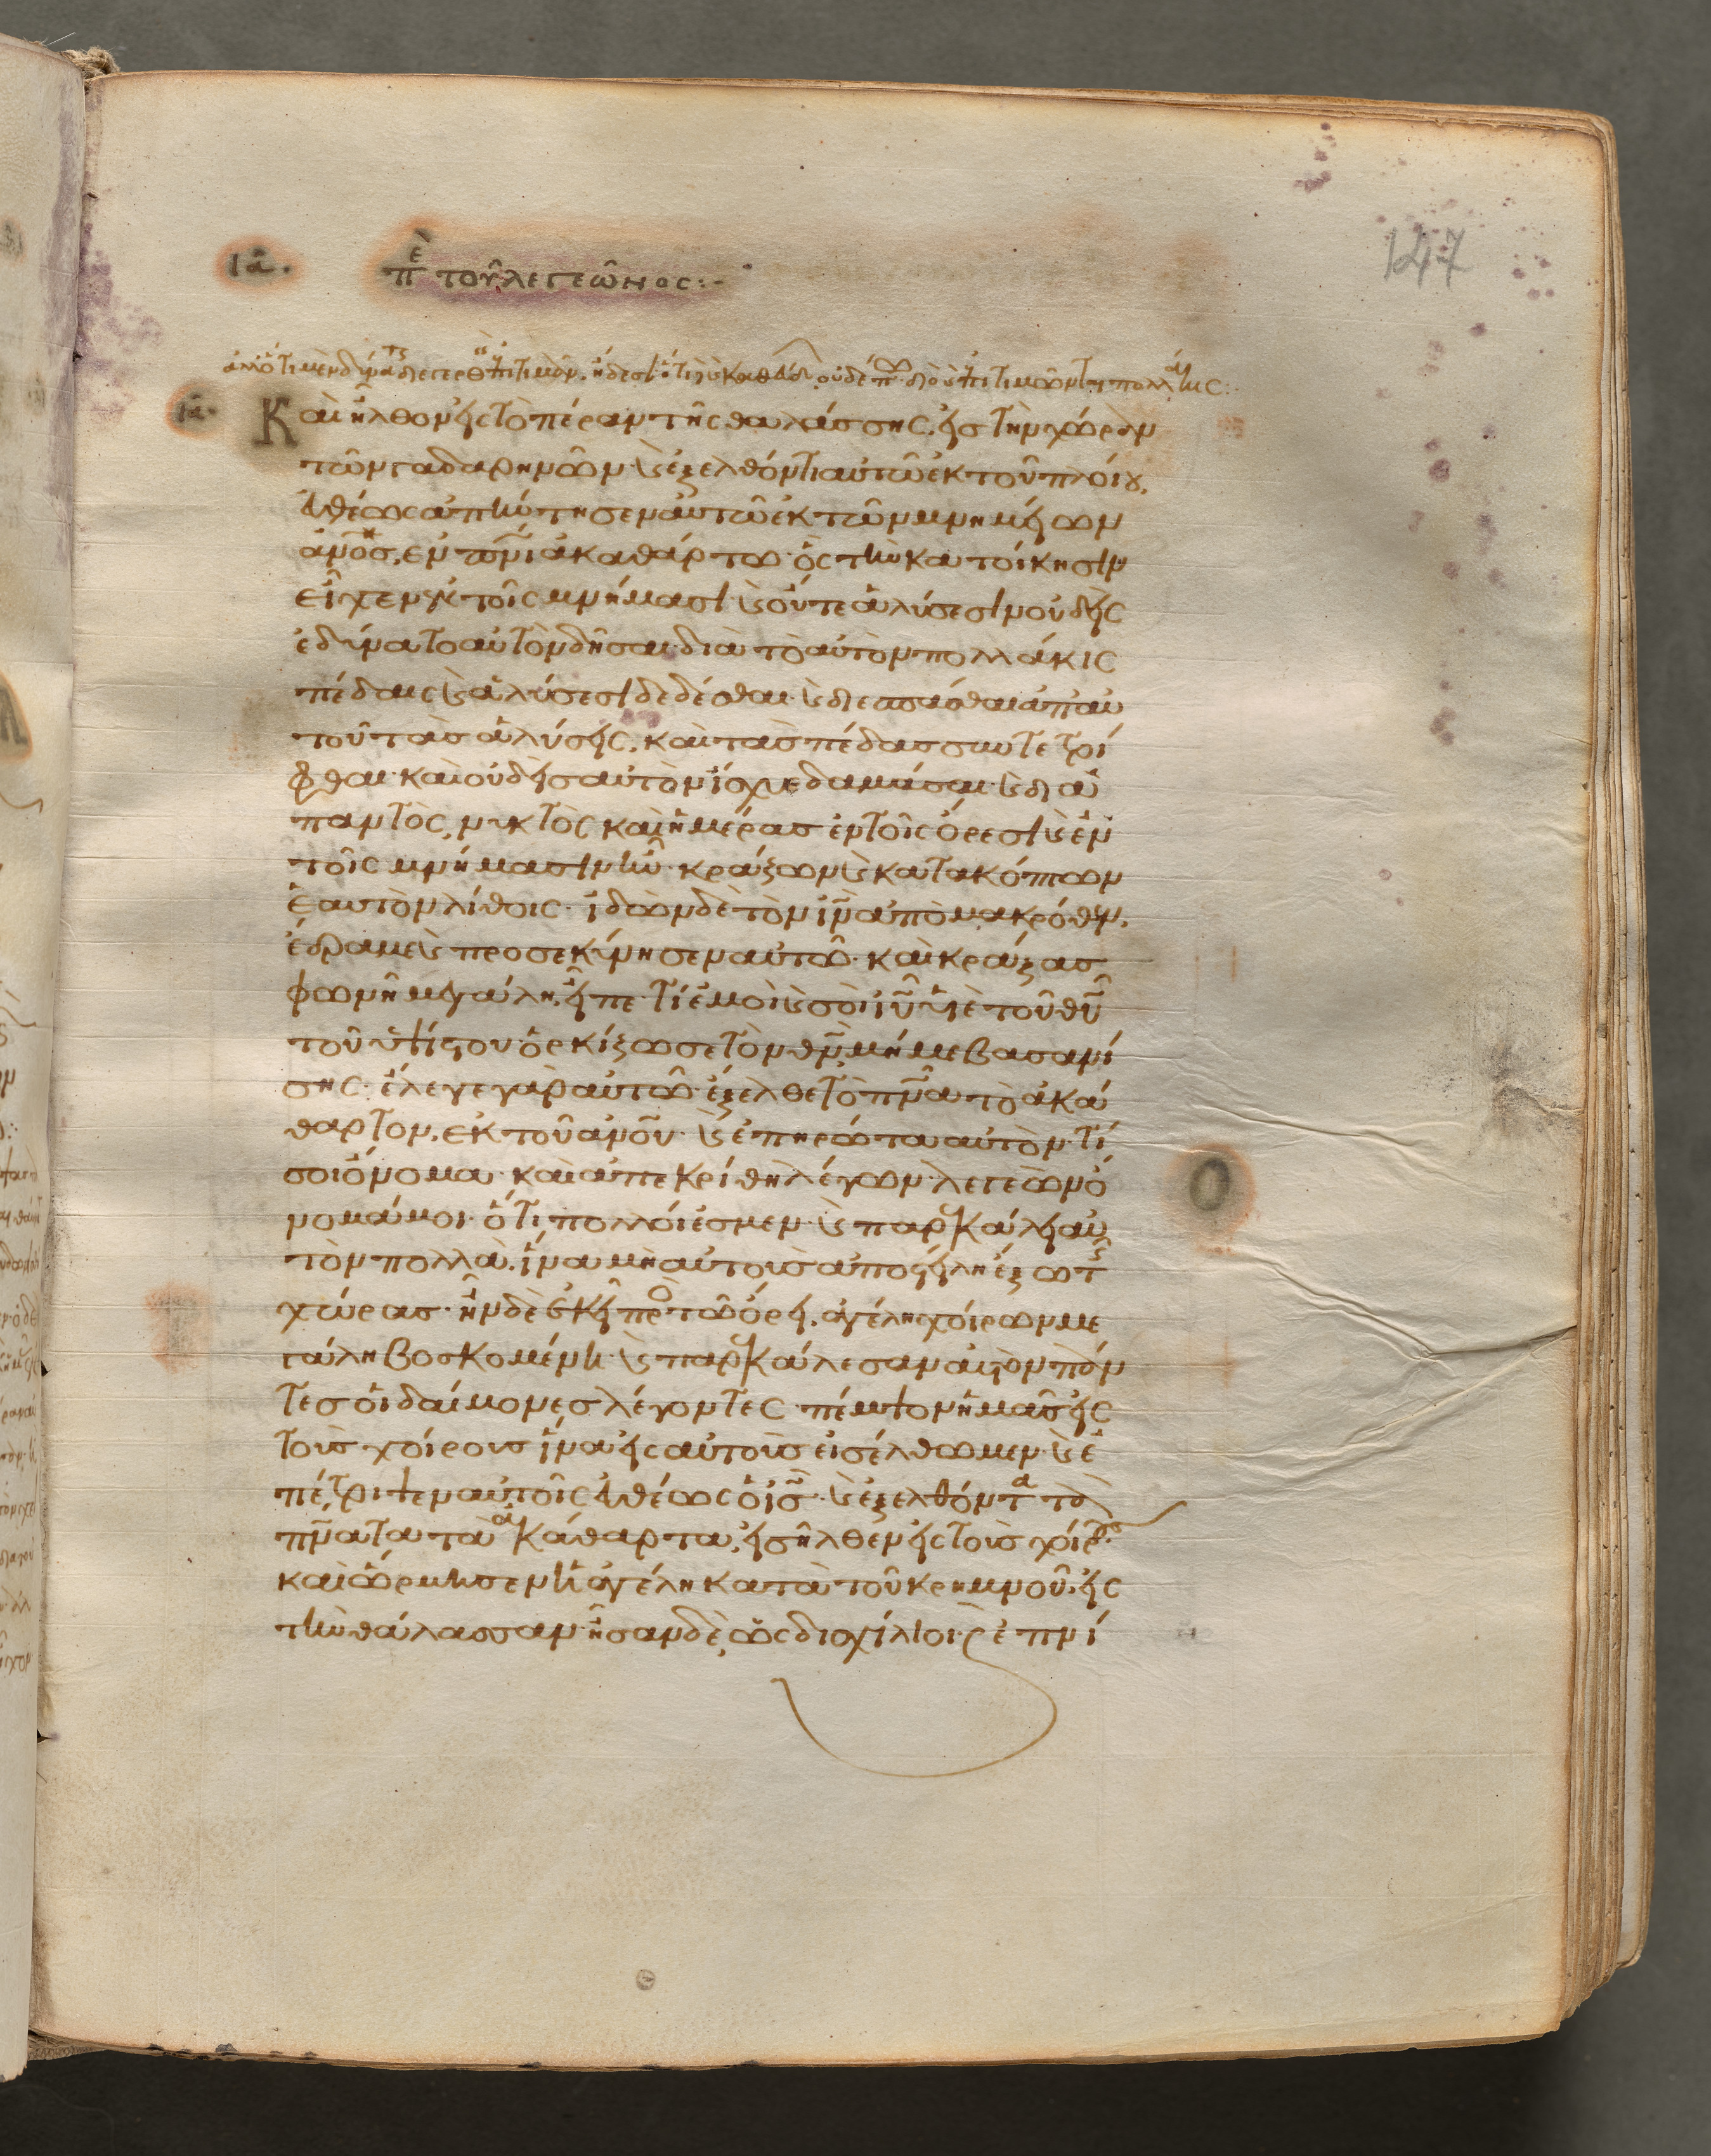 147
ιᾱ. πὲ τοῦ λεγεῶνος:-
ιᾱ. Καὶ ἦλθον εἰς τὸ πέραν τῆς θαλάσσης. εἰς τὴν χώραν
τῶν γαδαρηνῶν· καὶ ἐξελθόντι αὐτῶ ἐκ τοῦ πλοίου,
εὐθέως ἀπήντησεν αὐτῶ ἐκ τῶν μνημείων
ἀν̅ο̅σ̅, ἐν π̅ν̅ι̅ ἀκαθάρτω· ὃς τὴν κατοίκησιν
εἶχεν ἐν τοῖς μνήμασι· καὶ οὔτε ἁλύσεσιν οὐδεὶς
ἐδύνατο αὐτὸν δῆσαι· διὰ τὸ αὐτὸν πολλάκις
πέδαις καὶ ἁλύσεσι δεδέσθαι· καὶ διεσπάσθαι ἀπ' αὐ
τοῦ τὰς ἁλύσεις, καὶ τὰς πέδας συντετρί
φθαι· καὶ οὐδεὶς αὐτὸν ἴσχυε δαμάσαι· καὶ δια
παντὸς, νυκτὸς καὶ ἡμέρας ἐν τοῖς ὄρεσι καὶ ἐν
τοῖς μνήμασιν ἦν· κράζων καὶ κατακόπτων
ἑαυτὸν λίθοις· ἰδὼν δὲ τὸν ι̅ν̅ ἀπὸ μακρόθεν,
ἔδραμε καὶ προσεκύνησεν αὐτῶ· καὶ κράξας
φωνῆ μεγάλη, εἶπε· τί ἐμοὶ καὶ σοὶ ι̅υ̅ υἱὲ τοῦ θ̅υ̅
τοῦ ὑψίστου· ὁρκίζω σε τὸν θ̅ν̅, μή με βασανί
σης· ἔλεγε γὰρ αὐτῶ· ἔξελθε τὸ π̅ν̅α̅ τὸ ἀκά
θαρτον, ἐκ τοῦ ἀν̅ο̅υ̅· καὶ ἐπηρώτα αὐτὸν· τί
σοι ὄνομα· καὶ ἀπεκρίθη λέγων· λεγεὼν ὄ
νομά μοι· ὅτι πολλοί ἐσμεν· καὶ παρεκάλει αὐ
τὸν πολλὰ, ἵνα μὴ αὐτοὺς ἀποστείλη ἔξω τῆς
χώρας· ἦν δὲ ἐκεῖ πρὸς τῶ ὄρει, ἀγέλη χοίρων με
γάλη βοσκομένη· καὶ παρεκάλεσαν αὐτὸν πάν
τες οἱ δαίμονες λέγοντες· πέμψον ἡμᾶς εἰς
τοὺς χοίρους ἵνα εἰς αὐτοὺς εἰσέλθωμεν· καὶ ἐ
πέτρεψεν αὐτοῖς εὐθέως ὁ ι̅σ̅· καὶ ἐξελθόντα τὰ
π̅ν̅α̅τα τὰ ἀκάθαρτα, εἰσῆλθεν εἰς τοὺς χοίρους·
καὶ ὥρμησεν ἡ ἀγέλη κατὰ τοῦ κρημνοῦ· εἰς
τὴν θάλασσαν· ἦσαν δὲ, ὡς δισχίλιοι· καὶ ἐπνί